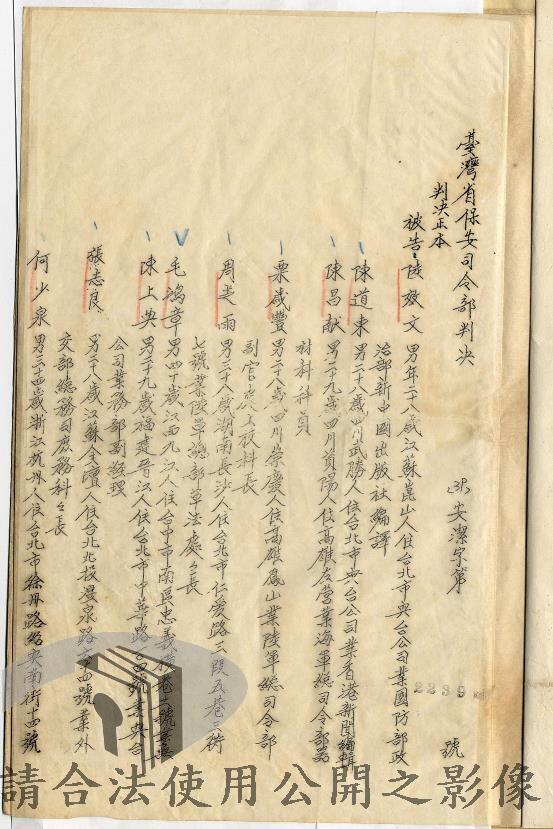 臺灣省保安司令部判決
安潔字第 2239 號
判決正本
被告 陸效文 男年二十八歲江蘇崑山人住台北市興台公司業國防部政
治部新中國出版社編譯
陳道東 男二十八歲四川武勝人住台北市興台公司業香港新聞編輯
陳昌献 男二十九歲四川資陽人住高雄左營業海軍總司令部
材料科員
栗歲豐 男二十八歲四川崇慶人住高雄鳳山業陸軍總司令部
副官處上校科長
周 雨 男三十八歲湖南長沙人住台北市仁愛路三段五巷三衖
七號業陸軍總部軍法處處長
毛鴻章 男四十歲江西九江人住台中市南區忠義 巷 號業
陳上 男二十九歲福建晋江人住台北市中華路 四號業興台
公司業務部副經理
張志良 男二十八歲江蘇金壇人住台北北投溫泉路 四號業外
交部總務司庶務科科長
何少泉 男三十 歲浙江杭州人住台北市徐州路紹興南街 四號
請合法使用公開之影像